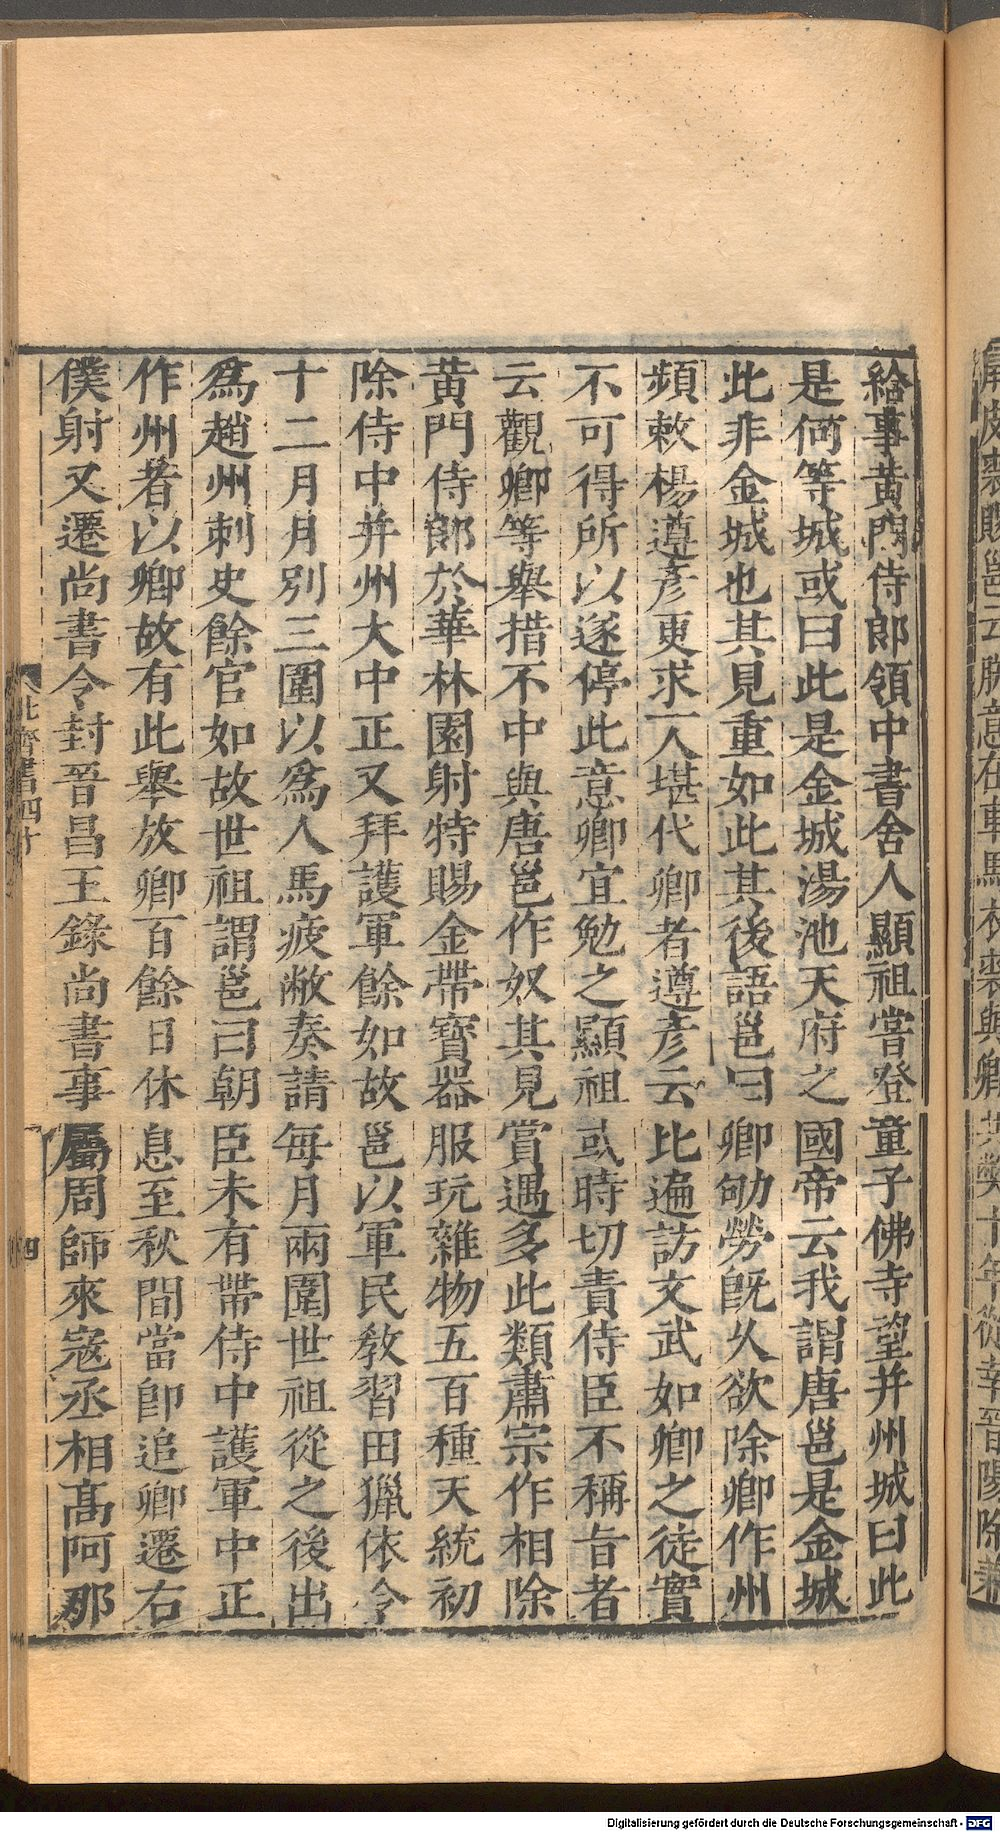 給事黄門侍郎領中書舍人顯祖嘗登童子佛寺望并州城曰此
是何等城或曰此是金城湯池天府之國帝云我謂唐邕是金城
此非金城也其見重如此其後語邕曰卿劬勞既久欲除卿作州
頻敕楊遵彦更求一人堪代卿者遵彦云比遍訪文武如卿之徒實
不可得所以遂停此意卿宜勉之顯祖或時切責侍臣不稱旨者
云觀卿等舉措不中與唐邕作奴其見賞遇多此類肅宗作相除
黄門侍郎於華林園射特賜金帶寳器服玩雜物五百種天統初
除侍中并州大中正又拜護軍餘如故邕以軍民教習田獵依令
十二月月別三圍以爲人馬疲敝奏請每月兩圍世祖從之後出
爲趙州刺史餘官如故世祖謂邕曰朝臣未有帶侍中護軍中正
作州者以卿故有此舉放卿百餘日休息至秋間當即追卿遷右
僕射又遷尚書令封晋昌王錄尚書事屬周師來寇丞相高阿那
北齊書四十
四
皮裘賜邕云朕意在車馬衣裘與卿共弊十年從幸晋陽除兼
Digitalisierung gefördert durch die Deutsche Forschungsgemeinschaft - DFG